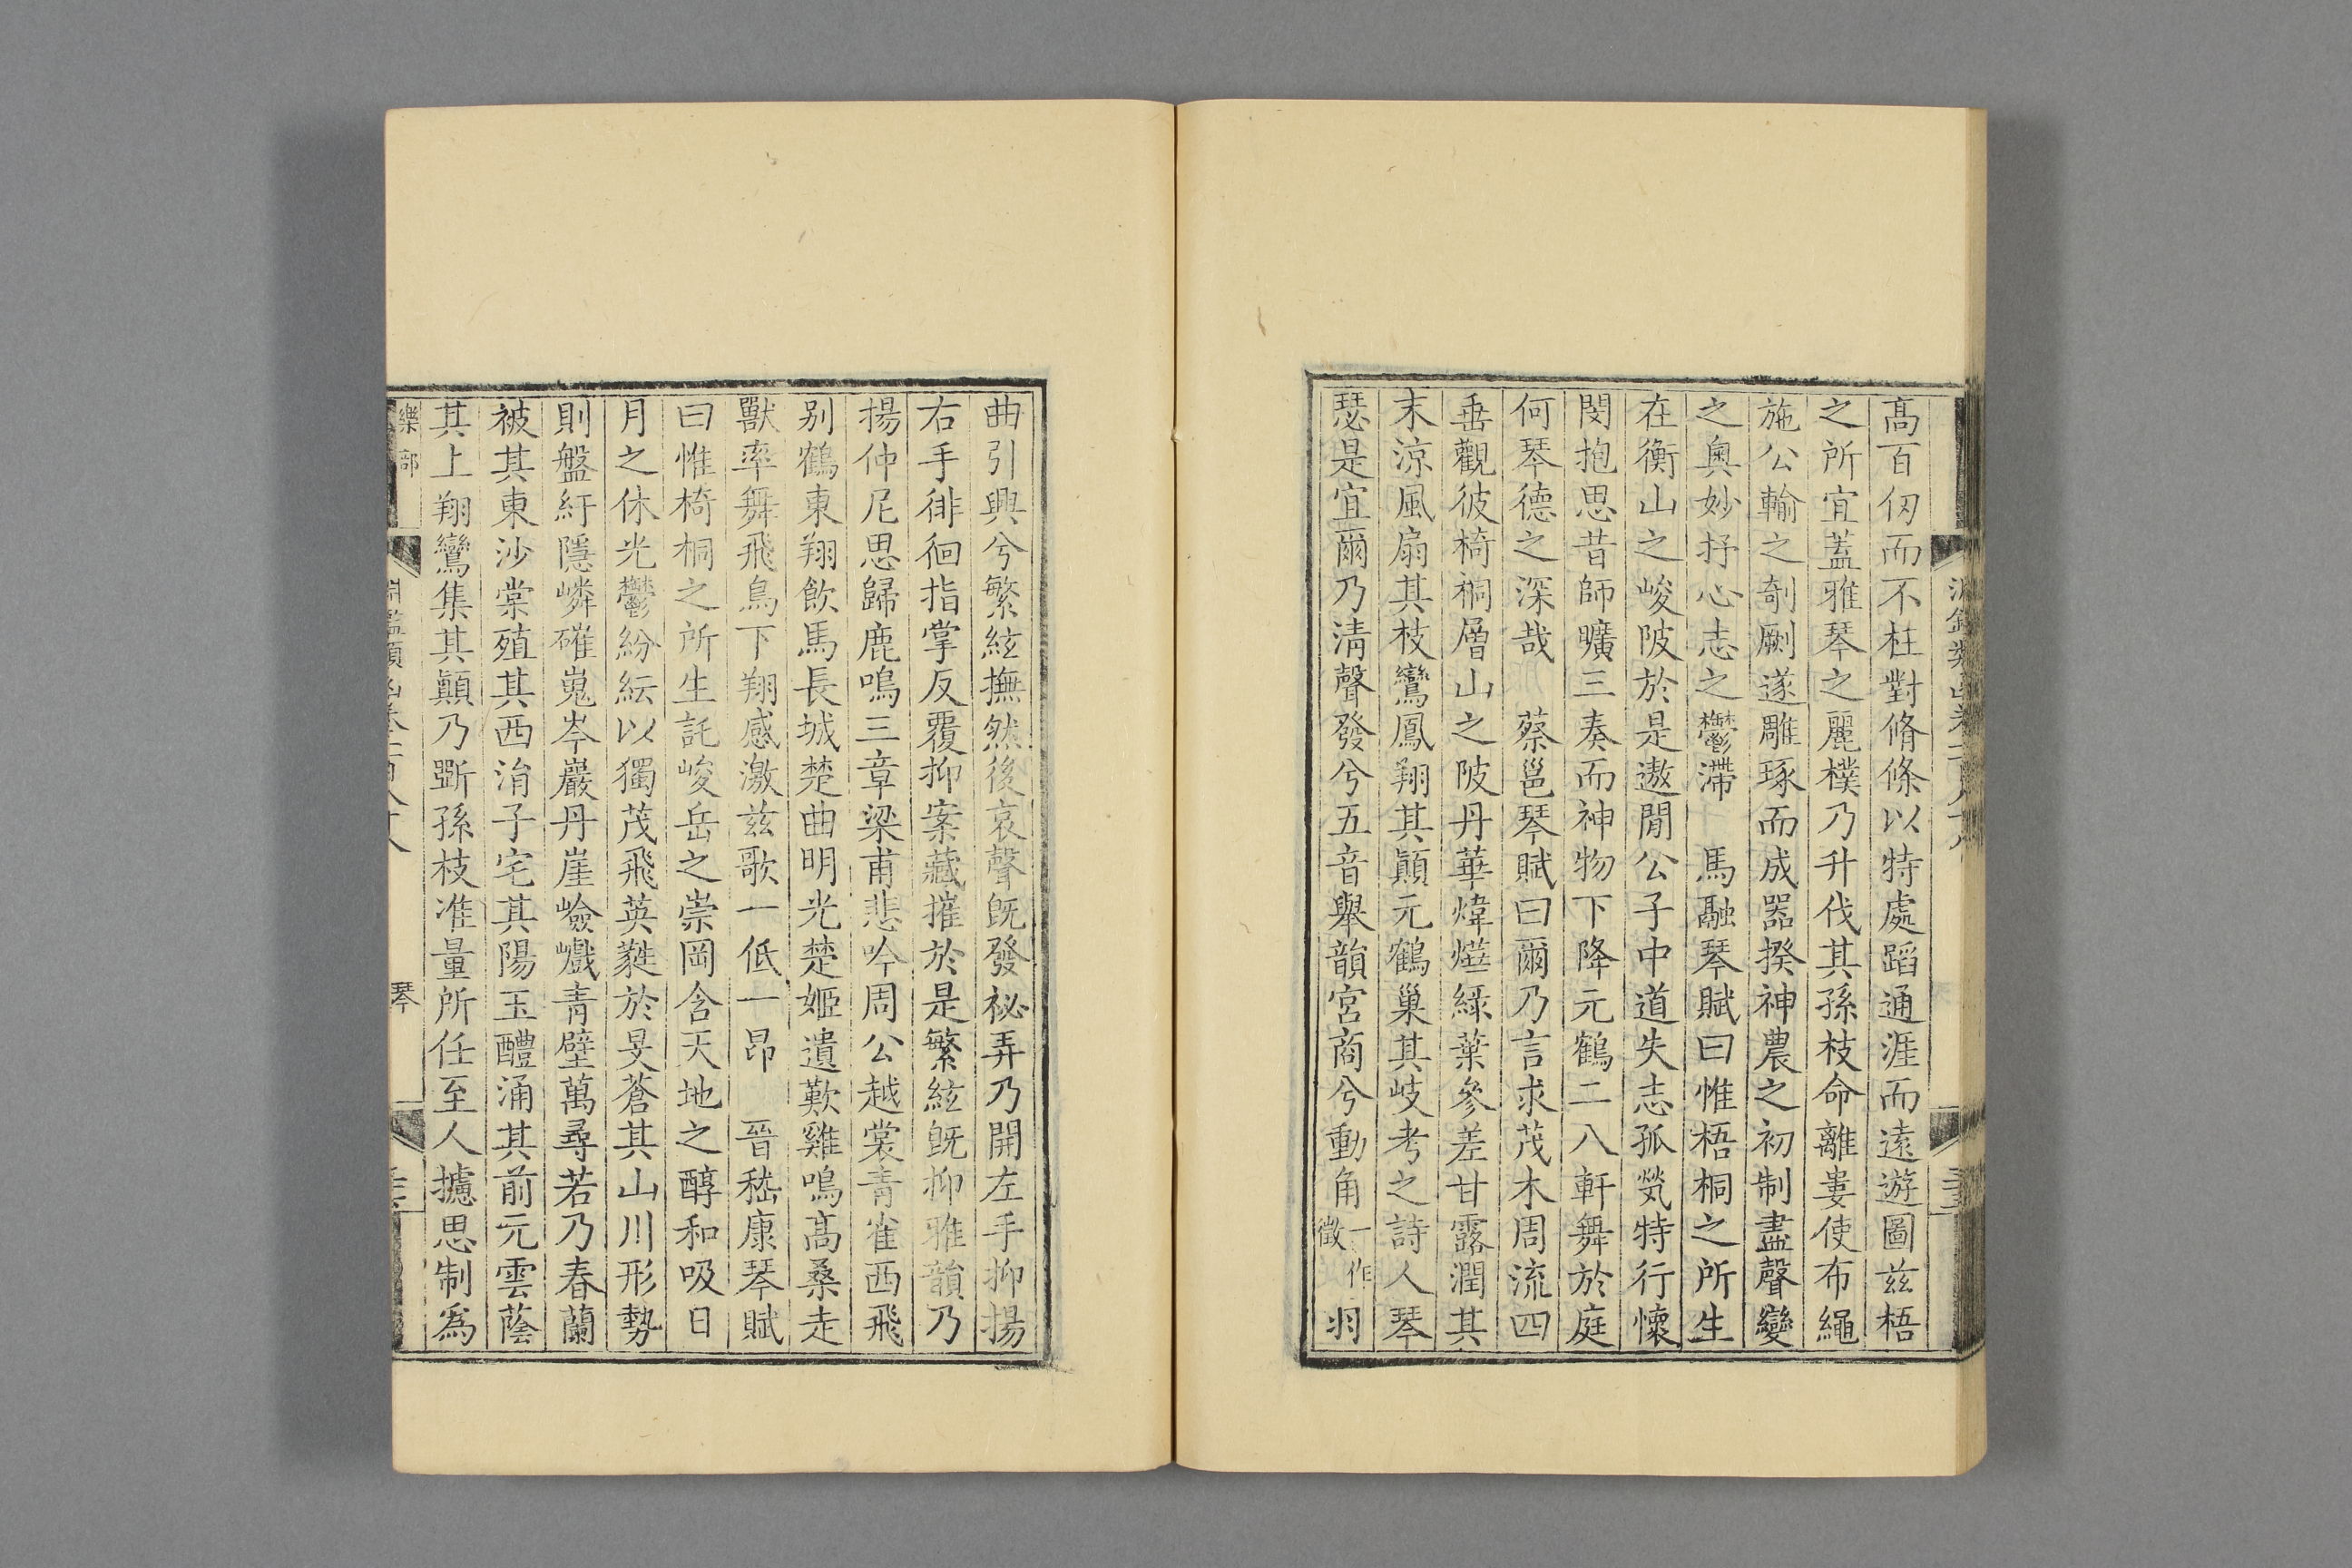 高百仞而不枉對脩條以特處蹈通涯而遠遊圖茲梧
之所宜蓋雅琴之麗樸乃升伐其孫枝命離婁使布繩
施公輸之剞劂遂雕琢而成器揆神農之初制盡聲變
之奧妙抒心志之鬱滯　馬融琴賦曰惟梧桐之所生
在衡山之峻陂於是遨閒公子中道失志孤煢特行懷
閔抱思昔師曠三奏而神物下降元鶴二八軒舞於庭
何琴德之深哉　蔡邕琴賦曰爾乃言求茂木周流四
垂觀彼椅桐層山之陂丹華煒燁綠葉參差甘露潤其
末涼風扇其枝鸞鳳翔其顛元鶴巢其岐考之詩人琴
瑟是宜爾乃清聲發兮五音舉韻宮商兮動角一作徵羽
曲引興兮繁絃撫然後哀聲既發祕弄乃開左手抑揚
右手徘徊指掌反覆抑案藏摧於是繁絃既抑雅韻乃
揚仲尼思歸鹿鳴三章梁甫悲吟周公越裳青雀西飛
別鶴東翔飲馬長城楚曲明光楚姬遺歎雞鳴高桑走
獸率舞飛鳥下翔感激茲歌一低一昂　晉嵇康琴賦
曰惟椅桐之所生託峻岳之崇岡含天地之醇和吸日
月之休光鬱紛紜以獨茂飛英蕤於旻蒼其山川形勢
則盤紆隱嶙磪嵬岑巖丹崖嶮巇青壁萬尋若乃春蘭
被其東沙棠殖其西涓子宅其陽玉醴涌其前元雲蔭
其上翔鸞集其顛乃斲孫枝准量所任至人攄思制為
樂部
琴